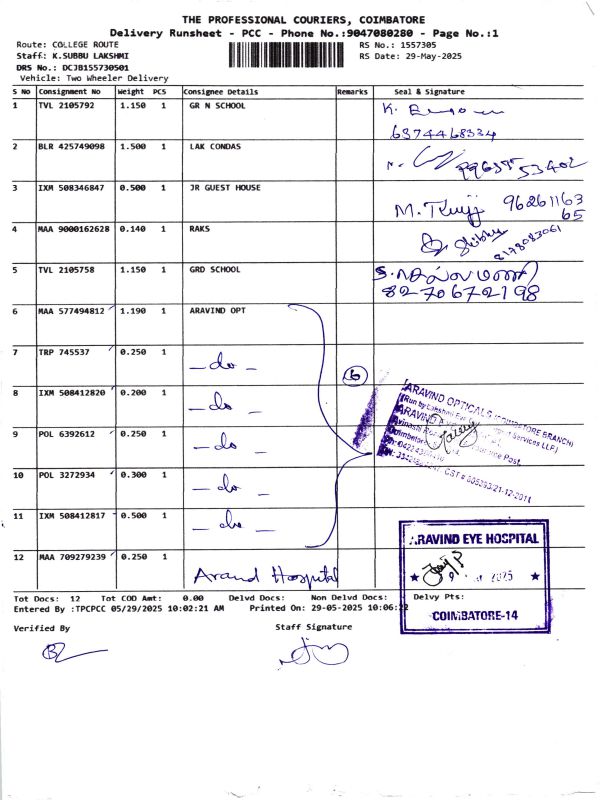 THE PROFESSIONAL COURIERS, COIMBATORE
Delivery Runsheet - PCC - Phone No.:9047080280 - Page No.:1
Route: COLLEGE ROUTE RS No.: 1557305
Staff: K.SUBBU LAKSHMI RS Date: 29-May-2025
DRS No.: DCJB155730501
Vehicle: Two Wheeler Delivery
S No Consignment No Weight PCS Consignee Details Remarks Seal & Signature
1 TVL 2105792 1.150 1 GR N SCHOOL K.
6374468334
2 BLR 425749098 1.500 1 LAK CONDAS
3 IXM 508346847 0.500 1 JR GUEST HOUSE M. 96261163
65
4 MAA 9000162628 0.140 1 RAKS 8178083061
5 TVL 2105758 1.150 1 GRD SCHOOL
8270672198
6 MAA 577494812 1.190 1 ARAVIND OPT
7 TRP 745537 0.250 1 - do -
6
8 IXM 508412820 0.200 1 - do -
9 POL 6392612 0.250 1 - do -
10 POL 3272934 0.300 1 - do -
11 IXM 508412817 0.500 1 - do -
12 MAA 709279239 0.250 1 Arand Hospital
ARAVIND OPTICALS (COIMBATORE BRANCH)
ARAVIND EYE HOSPITAL
2025
COIMBATORE-14
Tot Docs: 12 Tot COD Amt: 0.00 Delvd Docs: Non Delvd Docs: Delvy Pts:
Entered By :TPCPCC 05/29/2025 10:02:21 AM Printed On: 29-05-2025 10:06:22
Verified By Staff Signature